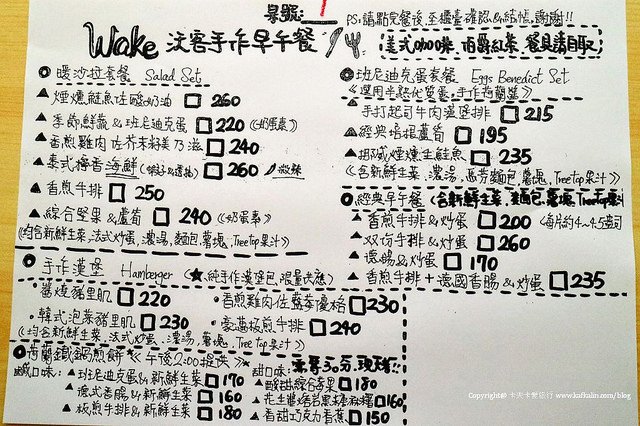 桌號:
PS:請點完餐後,至櫃臺確認&結帳,謝謝!!
Wake 沃客手作早午餐
美式咖啡.伯爵紅茶.餐具請自取
暖沙拉套餐 Salad Set
▲煙燻鮭魚佐酸奶油 □ 260
▲季節鮮蔬&班尼迪克蛋 □ 220 (奶蛋素)
▲香煎雞肉佐芥末籽美乃滋 □ 240
▲泰式檸香海鮮 □ 260 微辣
▲香煎牛排 □ 250
▲綜合堅果&蘆筍 □ 240 (奶蛋素)
(均含新鮮生菜,法式炒蛋,濃湯,麵包,薯塊,TreeTop果汁)
手作漢堡 Hamberger (★純手作漢堡包,限量供應)
•當燒豬里肌 □ 220
•韓式泡菜豬里肌 □ 230
•香煎雞肉佐藍莓優格 □ 230
•豪邁板煎牛排 □ 240
(均含新鮮生菜,法式炒蛋,濃湯,薯塊,Tree top果汁)
荷蘭鐵鍋煎餅 《午後2:00提供》
鹹口味:
▲班尼迪克蛋&新鮮生菜 □ 170
▲德式香腸&新鮮生菜 □ 160
▲板煎牛排&新鮮生菜 □ 180
甜口味:
▲酸甜綜合莓果 □ 180
▲花生醬焙若黑糖麻糬 □ 160
▲香甜巧克力香蕉 □ 150
班尼迪克蛋套餐 Eggs Benedict Set
▲手打起司牛肉漢堡排 □ 215
▲經典培根蘆筍 □ 195
▲挪威煙燻生鮭魚 □ 235
(含新鮮生菜,濃湯,馬芬麵包,薯塊,TreeTop果汁)
經典早午餐 (含新鮮生菜,麵包,薯塊,TreeTop果汁
▲香煎牛排&炒蛋 □ 200 (每片約4~4.5盎司
▲双份牛排&炒蛋 □ 260
▲德腸&炒蛋 □ 170
▲香煎牛排+德國香腸&炒蛋 □ 235
Copyright@ 卡夫卡愛旅行 www.kafkalin.com/blog